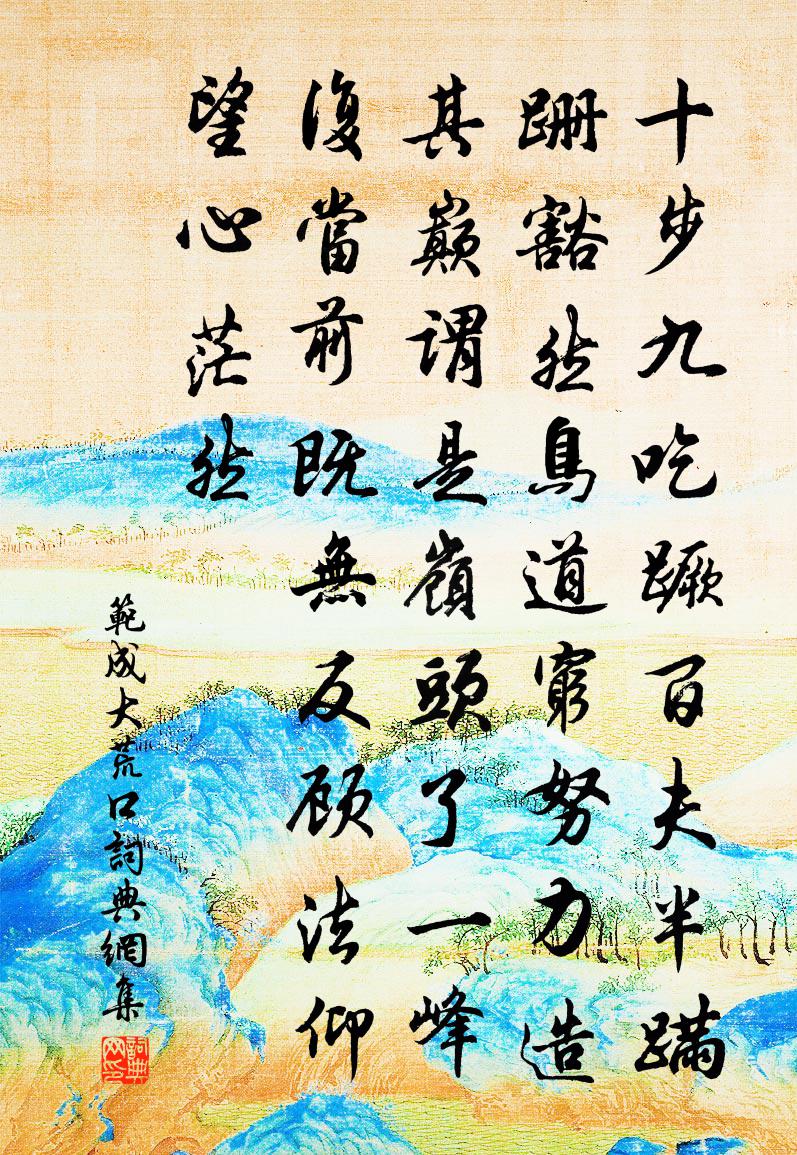 十步九吃蹶百夫半蹣
跚豁然鳥道窮努力造
其巔謂是嶺頭了一峰
復當前既無反顧法仰
望心茫然
範成大荒口詞典網集
詞典網印